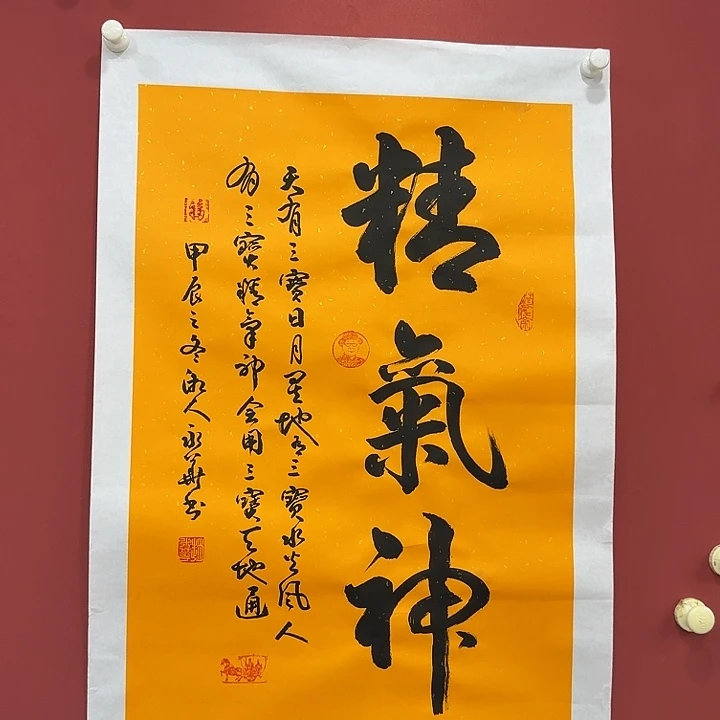 精氣神
天有三寶日月星地有三寶水火風人
有三寶精氣神会用三寶天地通
甲辰之冬 人永華书